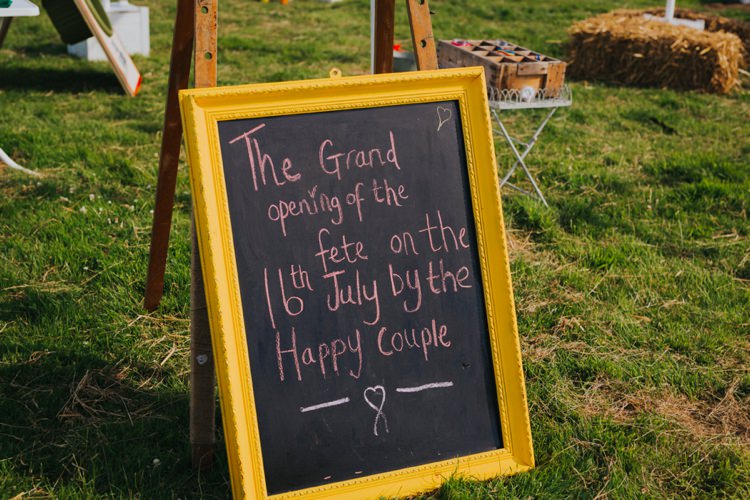 The Grand
opening of the
fete on the
16th July by the
Happy Couple